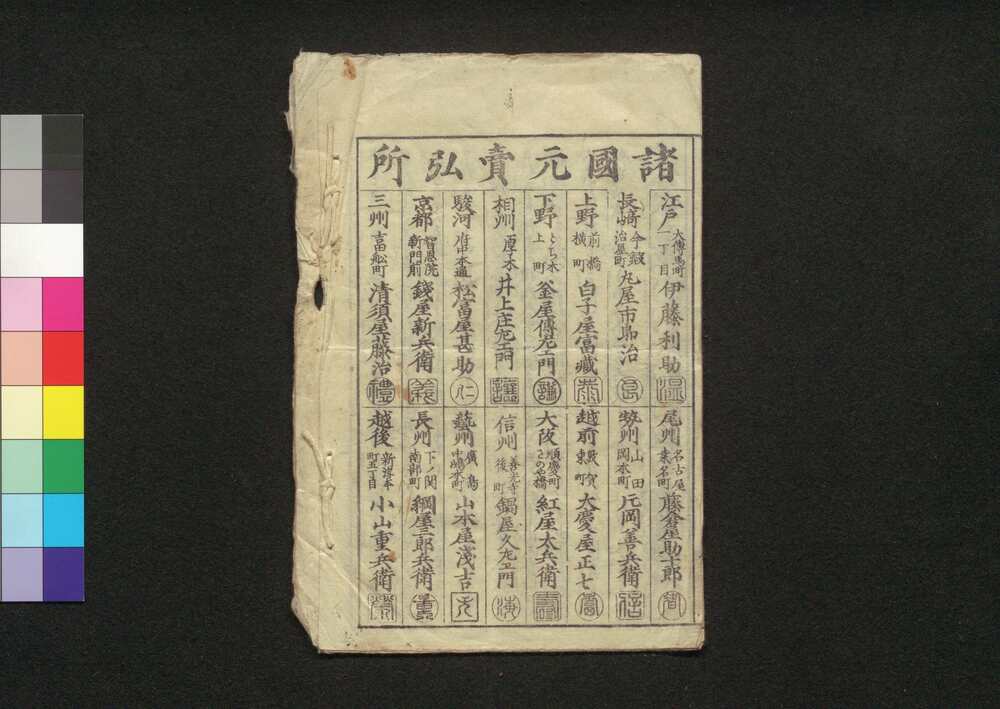 諸國元賣弘所
江戸 大傳馬町一丁目 伊藤利助
長崎 今鍛治屋町 丸屋市郎治
上野 前橋横町 白子屋富藏
下野 とち木上町 釜屋傳左エ門
相州 厚木 井上庄左エ門
駿河 府中本通 松富屋甚助 仁
京都 智恩院新門前 錢屋新兵衛 義
三州 吉田舩町 清須屋藤治 禮
尾州 名古屋桑名町 藤倉屋助十郎
勢州 山田岡本町 片岡善兵衛 信
越前 敦賀東町 大慶屋正七
大阪 順慶町さのや橋 紅屋太兵衛 壽
信州 善光寺後町 鍋屋久左エ門
藝州 廣島中嶋本町 山木屋淺吉
長州 下ノ関南部町 綱屋三郎兵衛
越後 新潟本町五丁目 小山重兵衛